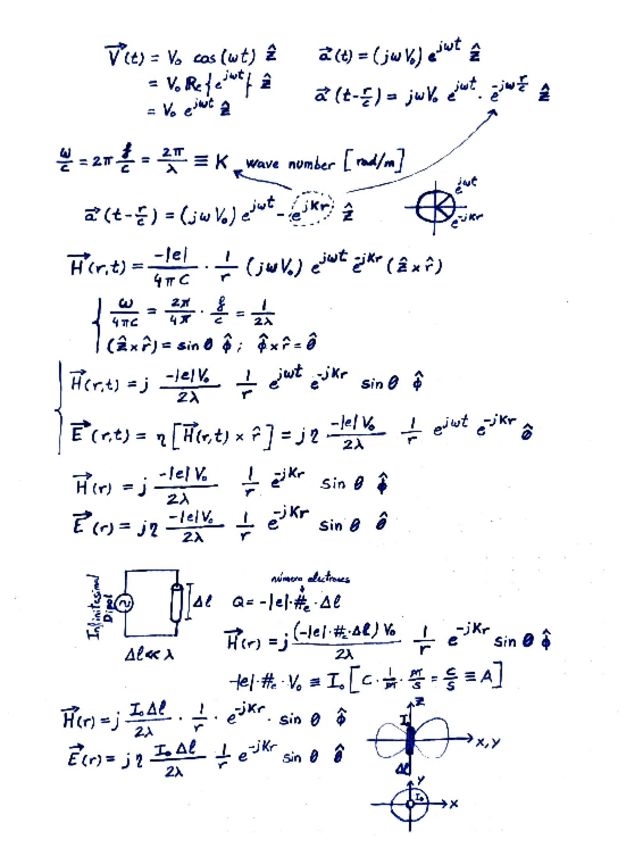 V⃗(t) = V₀ cos(ωt) ẑ
= V₀ Re{e^{jωt}} ẑ
= V₀ e^{jωt} ẑ
a⃗(t) = (jωV₀) e^{jωt} ẑ
a⃗(t-r/c) = jωV₀ e^{jωt} · e^{-jω r/c} ẑ
ω/c = 2π f/c = 2π/λ ≡ K wave number [rad/m]
a⃗(t-r/c) = (jωV₀) e^{jωt} - e^{jKr} ẑ
e^{jωt}
e^{-jKr}
H⃗(r,t) = -|e|/4πc · 1/r (jωV₀) e^{jωt} e^{-jKr} (ẑ×r̂)
ω/4πc = 2π/4π · f/c = 1/2λ
(ẑ×r̂) = sin θ φ̂; φ̂×r̂ = θ̂
H⃗(r,t) = j -|e|V₀/2λ 1/r e^{jωt} e^{-jKr} sin θ φ̂
E⃗(r,t) = η [H⃗(r,t) × r̂] = jη -|e|V₀/2λ 1/r e^{jωt} e^{-jKr} θ̂
H⃗(r) = j -|e|V₀/2λ 1/r e^{-jKr} sin θ φ̂
E⃗(r) = jη -|e|V₀/2λ 1/r e^{-jKr} sin θ θ̂
Infinitesimal
Dipol
Δl
Δl≪λ
número electrones
Q = -|e|·#e·Δl
H⃗(r) = j (-|e|·#e·Δl)V₀/2λ 1/r e^{-jKr} sin θ φ̂
-|e|·#e·V₀ ≡ I₀ [C · 1/m · m/s = C/s ≡ A]
H⃗(r) = j I₀Δl/2λ · 1/r · e^{-jKr} · sin θ φ̂
E⃗(r) = jη I₀Δl/2λ 1/r e^{-jKr} sin θ θ̂
Z
I
X, Y
Δl
Y
I₀
X